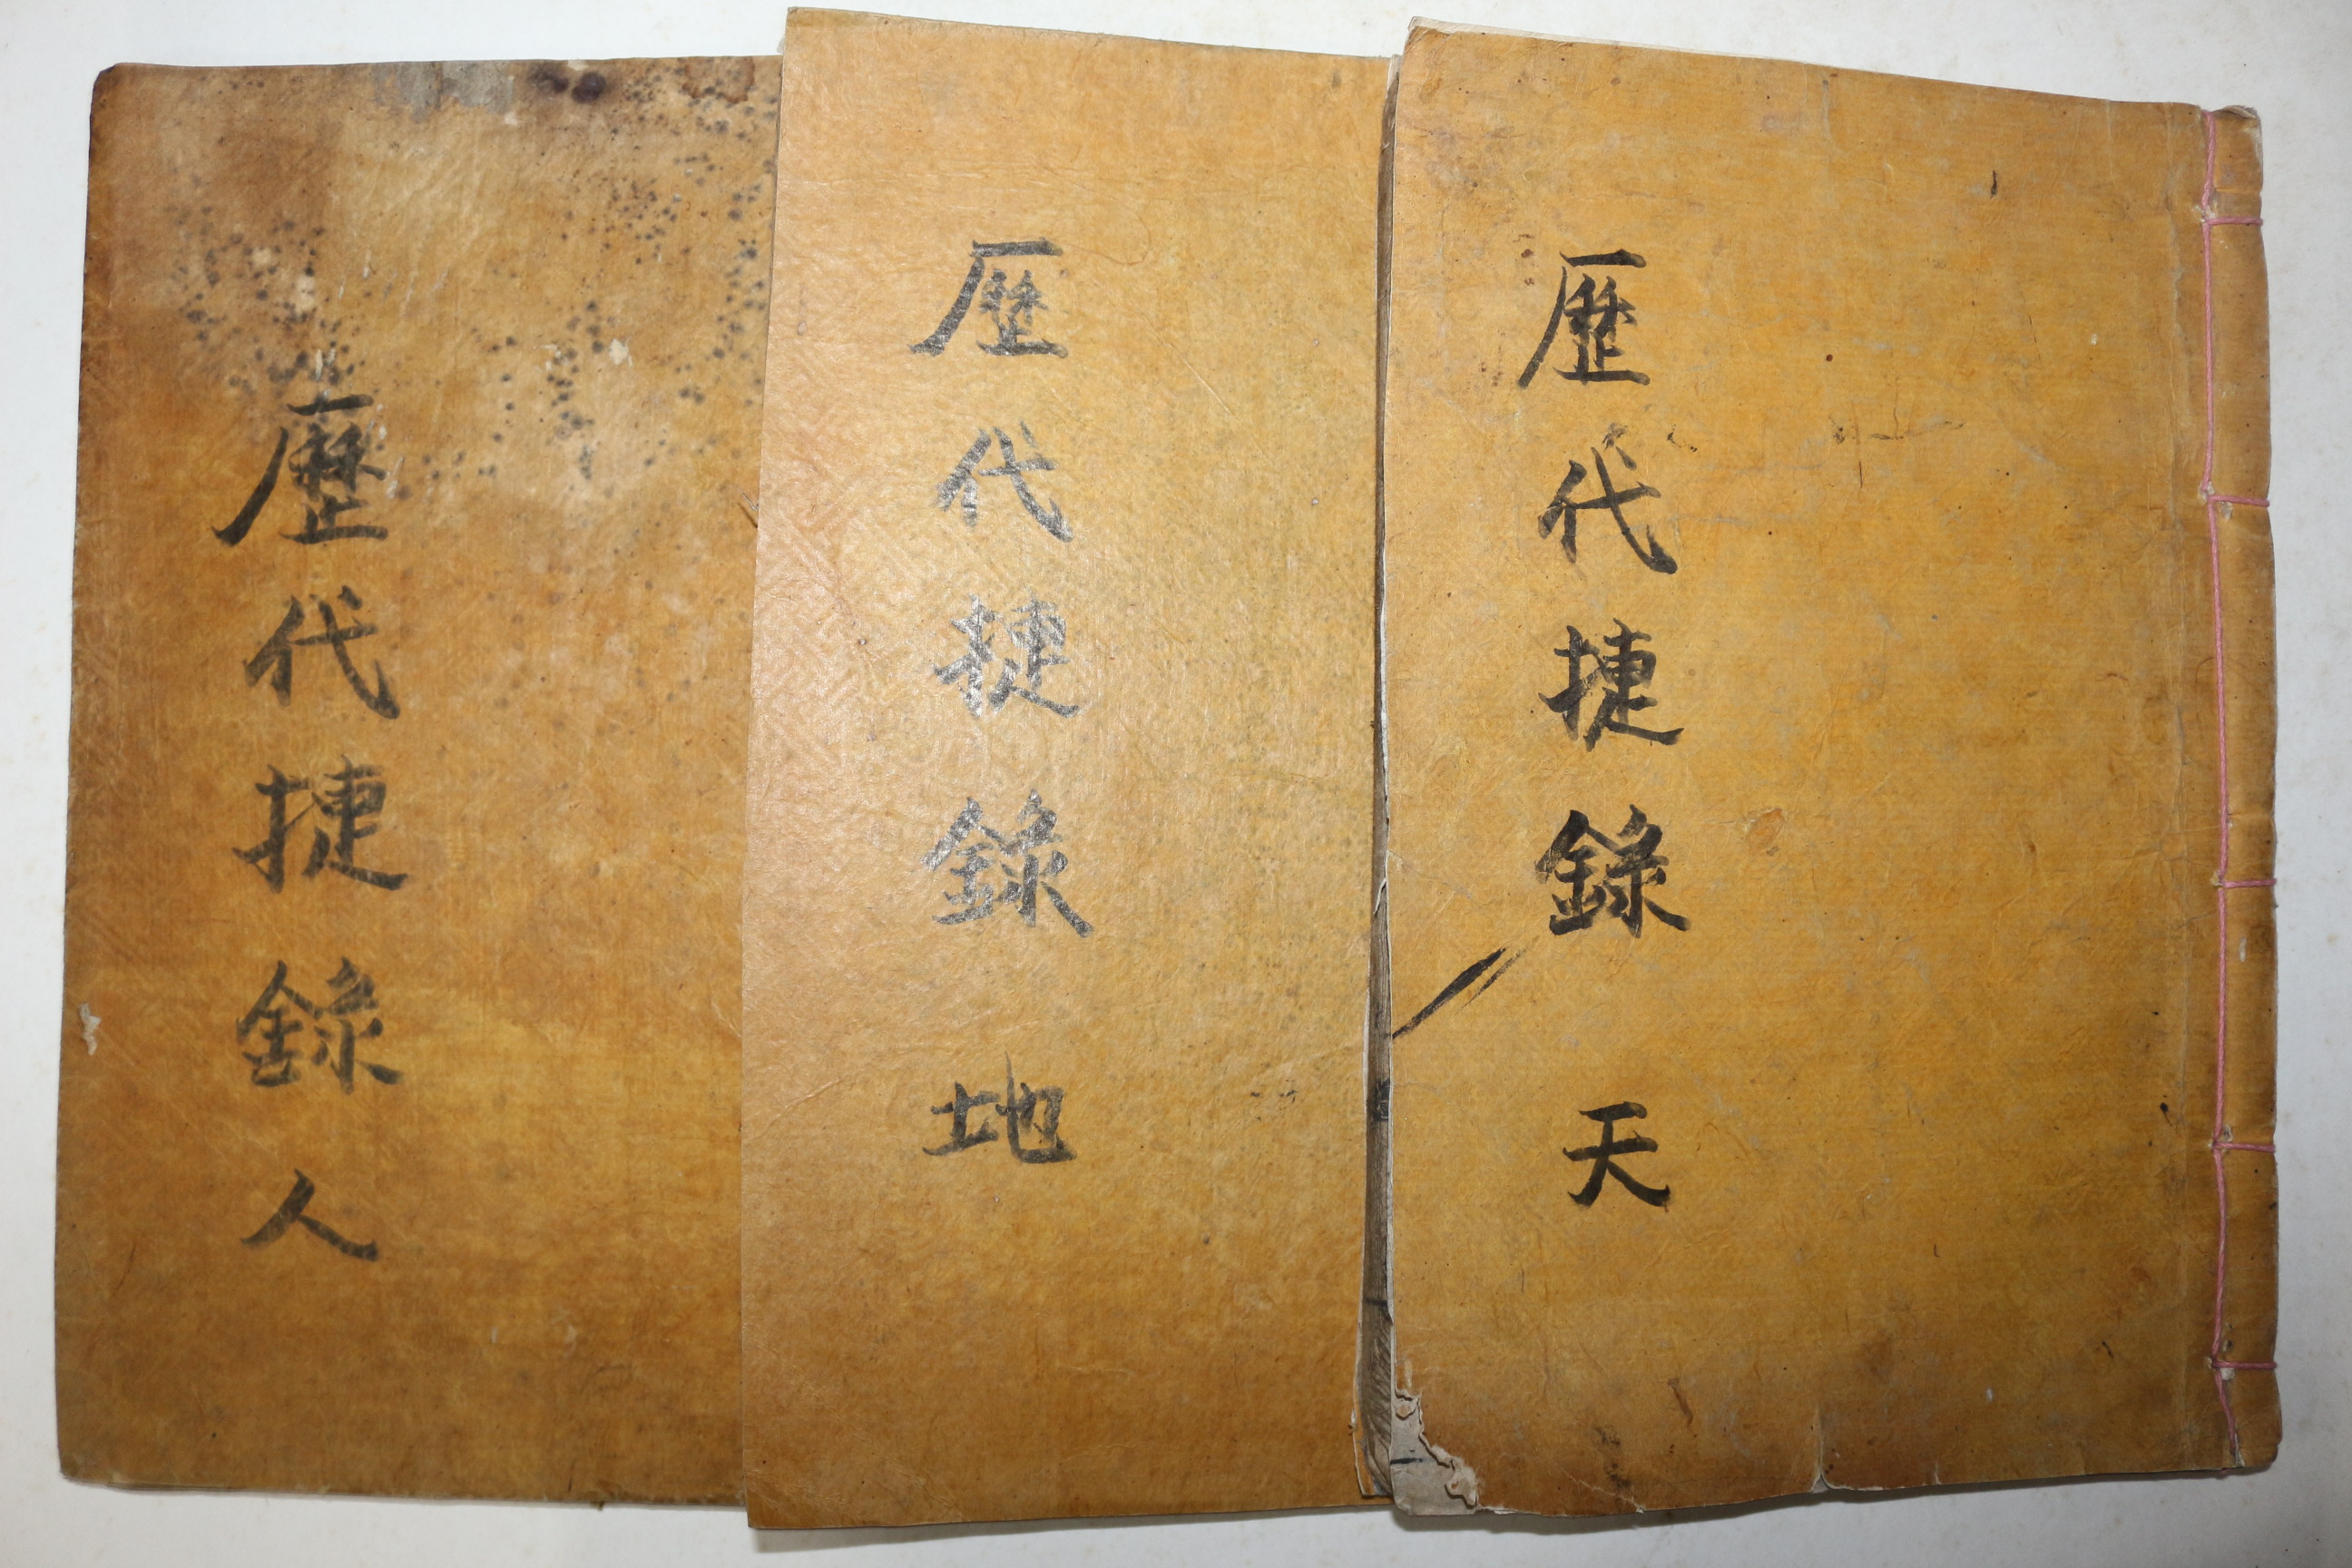 歷代捷錄 天
歷代捷錄 地
歷代捷錄 人